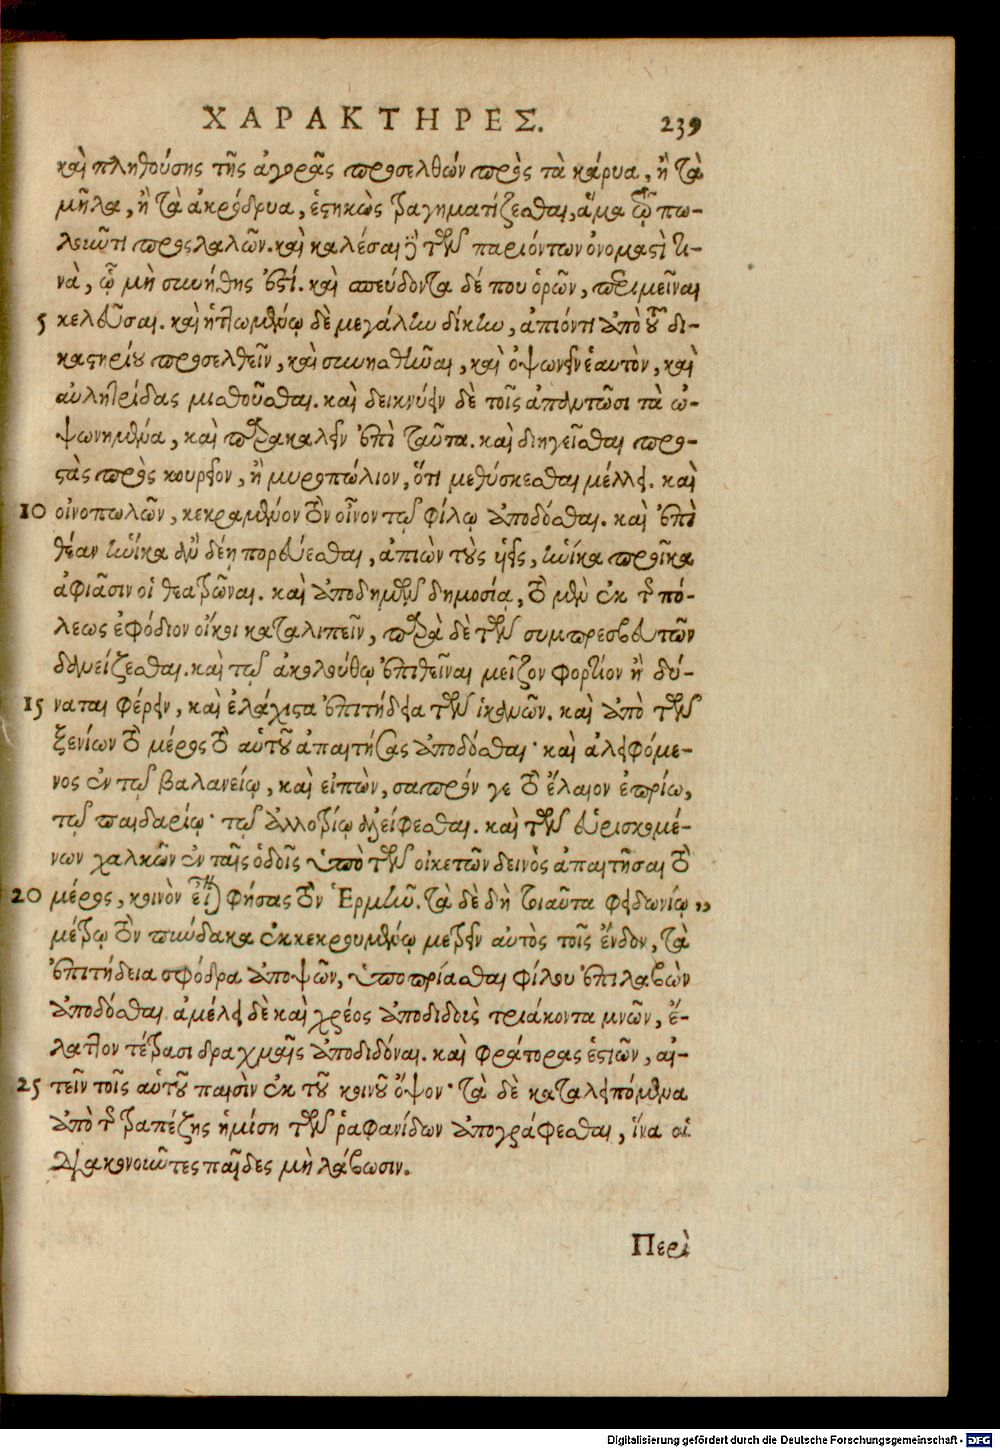 ΧΑΡΑΚΤΗΡΕΣ. 239
καὶ πληθούσης τῆς ἀγορᾶς προσελθών πρὸς τὰ κάρυα, ἢ τὰ
μῆλα, ἢ τὰ ἀκρόδρυα, ἑστηκὼς τραγηματίζεσθαι, ἅμα τῷ πω-
λοιῶτι προςλαλῶν. καὶ καλέσαι δὲ τῶν παριόντων ὀνομαστὶ τι-
νὰ, ᾧ μὴ συνήθης ἐστί. καὶ σπεύδοντα δέ που ὁρῶν, περιμεῖναι
5 κελεῦσαι. καὶ ἡττωμένῳ δὲ μεγάλην δίκην, ἀπιόντι ἀπὸ τοῦ δι-
καστηρίου προσελθεῖν, καὶ συνησθῆναι, καὶ ὀψωνεῖν ἑαυτὸν, καὶ
αὐλητρίδας μισθοῦσθαι. καὶ δεικνύειν δὲ τοῖς ἀπαντῶσι τὰ ὠ-
ψωνημένα, καὶ παρακαλεῖν ἐπὶ ταῦτα. καὶ διηγεῖσθαι προ-
στὰς πρὸς κουρεῖον, ἢ μυροπώλιον, ὅτι μεθύσκεσθαι μέλλει. καὶ
10 οἰνοπωλῶν, κεκραμένον τὸν οἶνον τῷ φίλῳ ἀποδόσθαι. καὶ ἐπὶ
θέαν ἡνίκα ἂν δέῃ πορεύεσθαι, ἀπιὼν τοὺς υἱεῖς, ἡνίκα προῖκα
ἀφιᾶσιν οἱ θεατρῶναι. καὶ ἀποδημῶν δημοσίᾳ, τὸ μὲν ἐκ τῆς πό-
λεως ἐφόδιον οἴκοι καταλιπεῖν, παρὰ δὲ τῶν συμπρεσβευτῶν
δανείζεσθαι. καὶ τῷ ἀκολούθῳ ἐπιθεῖναι μεῖζον φορτίον ἢ δύ-
15 ναται φέρειν, καὶ ἐλάχιστα ἐπιτήδεια τῶν ἱκανῶν. καὶ ἀπὸ τῶν
ξενίων τὸ μέρος τὸ αὑτοῦ ἀπαιτήσας ἀποδόσθαι· καὶ ἀλειφόμε-
νος ἐν τῷ βαλανείῳ, καὶ εἰπὼν, σαπρόν γε τὸ ἔλαιον ἐπρίω,
τῷ παιδαρίῳ· τῷ ἀλλοτρίῳ ἀλείφεσθαι. καὶ τῶν εὑρισκομέ-
νων χαλκῶν ἐν ταῖς ὁδοῖς ὑπὸ τῶν οἰκετῶν δεινὸς ἀπαιτῆσαι τὸ
20 μέρος, κοινὸν εἶναι φήσας τὸν Ἑρμῆν. τὰ δὲ δὴ τοιαῦτα φειδωνίῳ „
μέτρῳ τὸν πύνδακα ἐκκεκρουμένῳ μετρεῖν αὐτὸς τοῖς ἔνδον, τὰ
ἐπιτήδεια σφόδρα ἀποψῶν, ὑποπρίασθαι φίλου ἐπιλαβὼν
ἀποδόσθαι. ἀμέλει δὲ καὶ χρέος ἀποδιδοὺς τριάκοντα μνῶν, ἔ-
λαττον τέτρασι δραχμαῖς ἀποδιδόναι. καὶ φράτορας ἑστιῶν, αἰ-
25 τεῖν τοῖς αὑτοῦ παισὶν ἐκ τοῦ κοινοῦ ὄψον· τὰ δὲ καταλειπόμενα
ἀπὸ τῆς τραπέζης ἡμίση τῶν ῥαφανίδων ἀπογράφεσθαι, ἵνα οἱ
διακονοιῶτες παῖδες μὴ λάβωσιν.
Περὶ
Digitalisierung gefördert durch die Deutsche Forschungsgemeinschaft - DFG